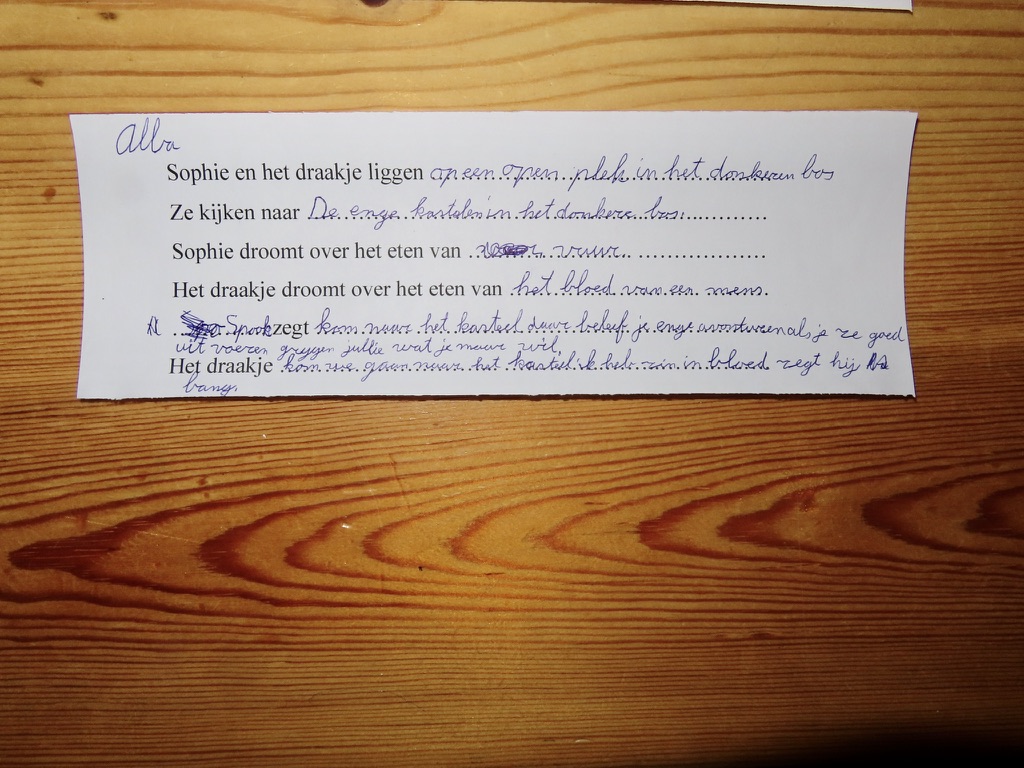 Alba
Sophie en het draakje liggen op een open plek in het donkeren bos
Ze kijken naar De enge kastelen in het donkere bos.
Sophie droomt over het eten van vuur.
Het draakje droomt over het eten van het bloed van een mens.
Spook zegt kom naar het kasteel daar beleef je enge avonturen als je ze goed
uit voeren gryggen jullie wat je maar wil.
Het draakje kom we gaan naar het kasteel ik heb zin in bloed zegt hij
bang.